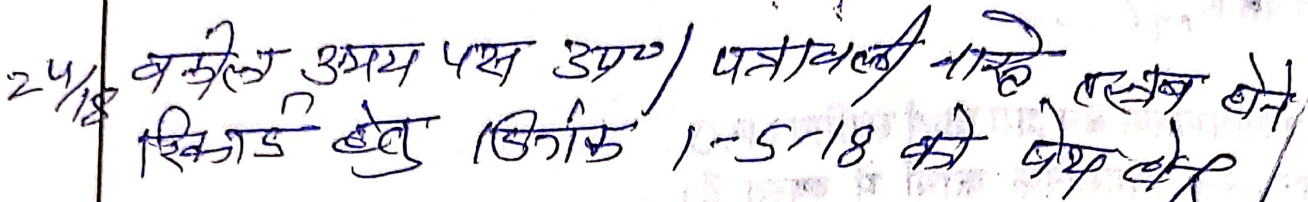 24/18 वकील उभय पक्ष उप०/ पत्रावली वास्ते तलब होने
रिकार्ड हेतु दिनांक 1-5-18 को पेश होवे।